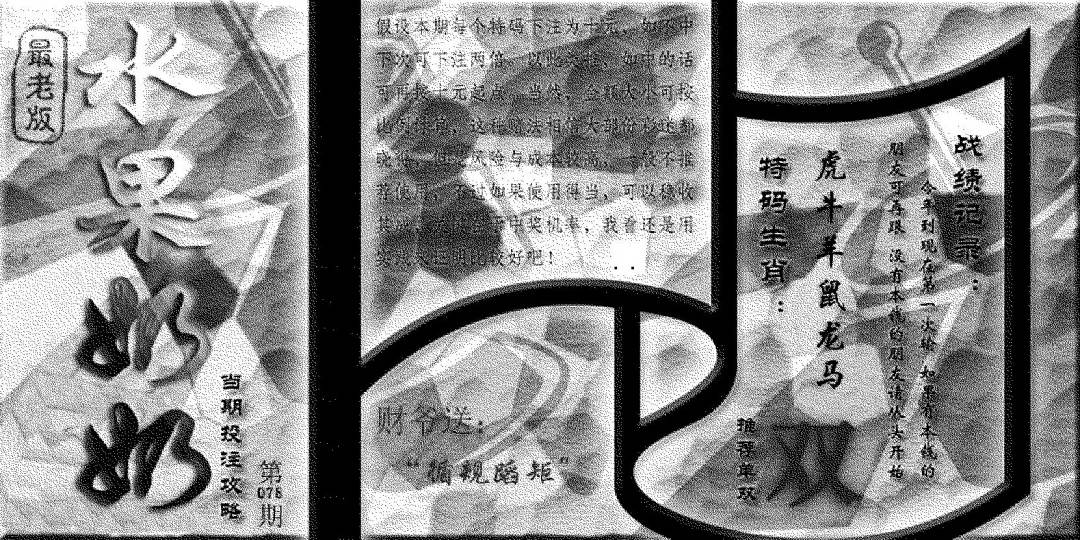 最老版
水果奶奶
当期投注攻略
第078期
假设本期每个特码下注为十元,如不中
下次可下注两倍,以此类推,如中的话
可再按十元起点,当然,金额大小可按
比例
这种赌法相信大部份彩迷都
风险与成本较高,一般不推
荐使用,不过如果使用得当,可以稳收
中奖机率,我看还是用
比较好吧!
财爷送:
“循规蹈矩”
特码生肖:
虎牛羊鼠龙马
推荐单双
双
战绩记录:
今年到现在第一次输 如果有本钱的
朋友可再跟 没有本钱的朋友请从头开始